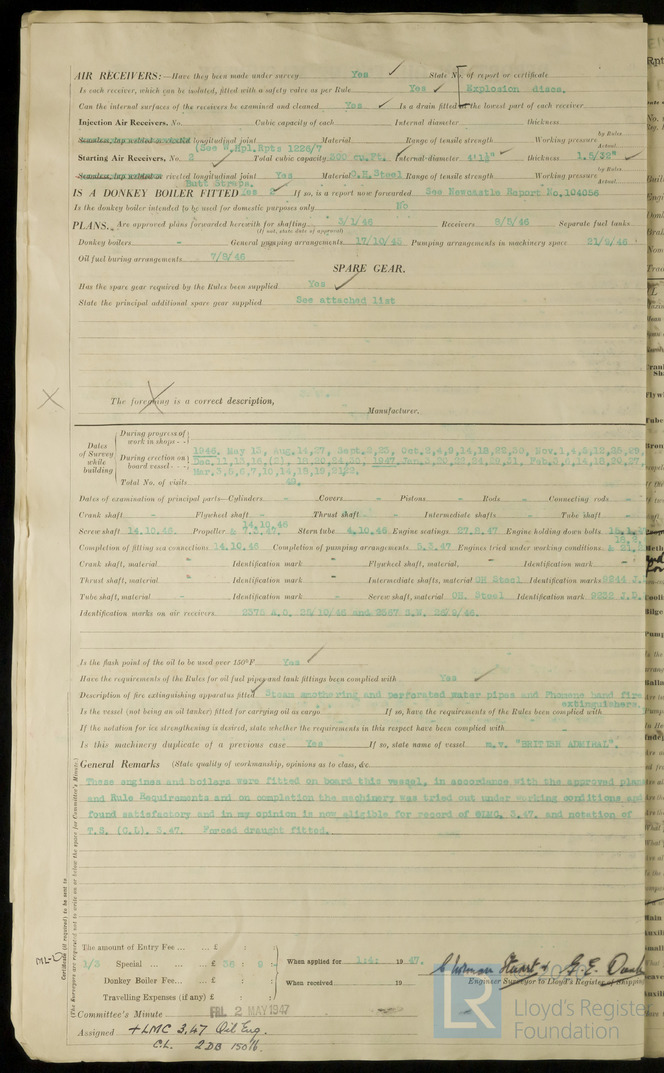 AIR RECEIVERS:—Have they been made under survey Yes ✓ State No. of report or certificate
Is each receiver, which can be isolated, fitted with a safety valve as per Rule Yes ✓ Explosion discs.
Can the internal surfaces of the receivers be examined and cleaned Yes ✓ Is a drain fitted at the lowest part of each receiver
Injection Air Receivers, No. Cubic capacity of each Internal diameter thickness
Seamless, lap welded or riveted longitudinal joint Material Range of tensile strength Working pressure by Rules Actual
(See W.Hpl.Rpts 1226/7
Starting Air Receivers, No. 2 Total cubic capacity 300 cu.Ft. Internal diameter 4'1½" thickness 1.5/32" ✓
Seamless, lap welded or riveted longitudinal joint Yes Material O.H.Steel Range of tensile strength Working pressure by Rules Actual
Butt Straps.
IS A DONKEY BOILER FITTED Yes 2 If so, is a report now forwarded See Newcastle Report No.104056
Is the donkey boiler intended to be used for domestic purposes only No
PLANS. Are approved plans forwarded herewith for shafting 3/1/46 Receivers 9/5/46 Separate fuel tanks
(If not, state date of approval)
Donkey boilers - General pumping arrangements 17/10/45 Pumping arrangements in machinery space 21/9/46
Oil fuel burning arrangements 7/9/46
SPARE GEAR.
Has the spare gear required by the Rules been supplied Yes ✓
State the principal additional spare gear supplied See attached list
The foregoing is a correct description,
Manufacturer.
Dates of Survey while building
During progress of work in shops - -
During erection on board vessel - - -
1946. May 13, Aug.14,27, Sept.2,25, Oct.2,4,9,14,18,22,30, Nov.1,4,8,12,25,29,
Dec.11,13,16 1947 Jan.
Mar.3,5,6,7,10,14,18,19,21
Total No. of visits 48.
Dates of examination of principal parts—Cylinders - Covers - Pistons - Rods - Connecting rods -
Crank shaft - Flywheel shaft - Thrust shaft - Intermediate shafts - Tube shaft -
Screw shaft 14.10.46. Propeller 14.10.46 & 7.3.47. Stern tube 4.10.46 Engine seatings 27.8.47 Engine holding down bolts
Completion of fitting sea connections 14.10.46 Completion of pumping arrangements 5.3.47 Engines tried under working conditions
Crank shaft, material - Identification mark - Flywheel shaft, material, - Identification mark -
Thrust shaft, material - Identification mark - Intermediate shafts, material OH Steel Identification marks 9244 J.
Tube shaft, material - Identification mark - Screw shaft, material OH. Steel Identification mark 9232 J.D.
Identification marks on air receivers 2575 A.O. 25/10/46 and 2567 S.W. 26/9/46.
Is the flash point of the oil to be used over 150°F. Yes ✓
Have the requirements of the Rules for oil fuel pipes and tank fittings been complied with Yes ✓
Description of fire extinguishing apparatus fitted Steam smothering and perforated water pipes and Phomene hand fire
extinguishers.
Is the vessel (not being an oil tanker) fitted for carrying oil as cargo If so, have the requirements of the Rules been complied with
If the notation for ice strengthening is desired, state whether the requirements in this respect have been complied with
Is this machinery duplicate of a previous case Yes If so, state name of vessel m.v. "BRITISH ADMIRAL".
General Remarks (State quality of workmanship, opinions as to class, &c.
These engines and boilers were fitted on board this vessel, in accordance with the approved plans
and Rule Requirements and on completion the machinery was tried out under working conditions and
found satisfactory and in my opinion is now eligible for record of ✠LMC. 3.47. and notation of
T.S. (C.L). 3.47. Forced draught fitted.
(The Surveyors are requested not to write on or below the space for Committee's Minute.)
Certificate (if required) to be sent to
The amount of Entry Fee ... ... £ : :
1/3 Special ... ... £ 38 : 0 :
Donkey Boiler Fee... ... £ : :
Travelling Expenses (if any) £ : :
When applied for 1:4: 1947.
When received 19
Engineer Surveyor to Lloyd's Register of Shipping
Committee's Minute FRI. 2 MAY 1947
Assigned +LMC 3.47 Oil Eng.
C.L. 2DB 150 lb.
LR Lloyd's Register Foundation